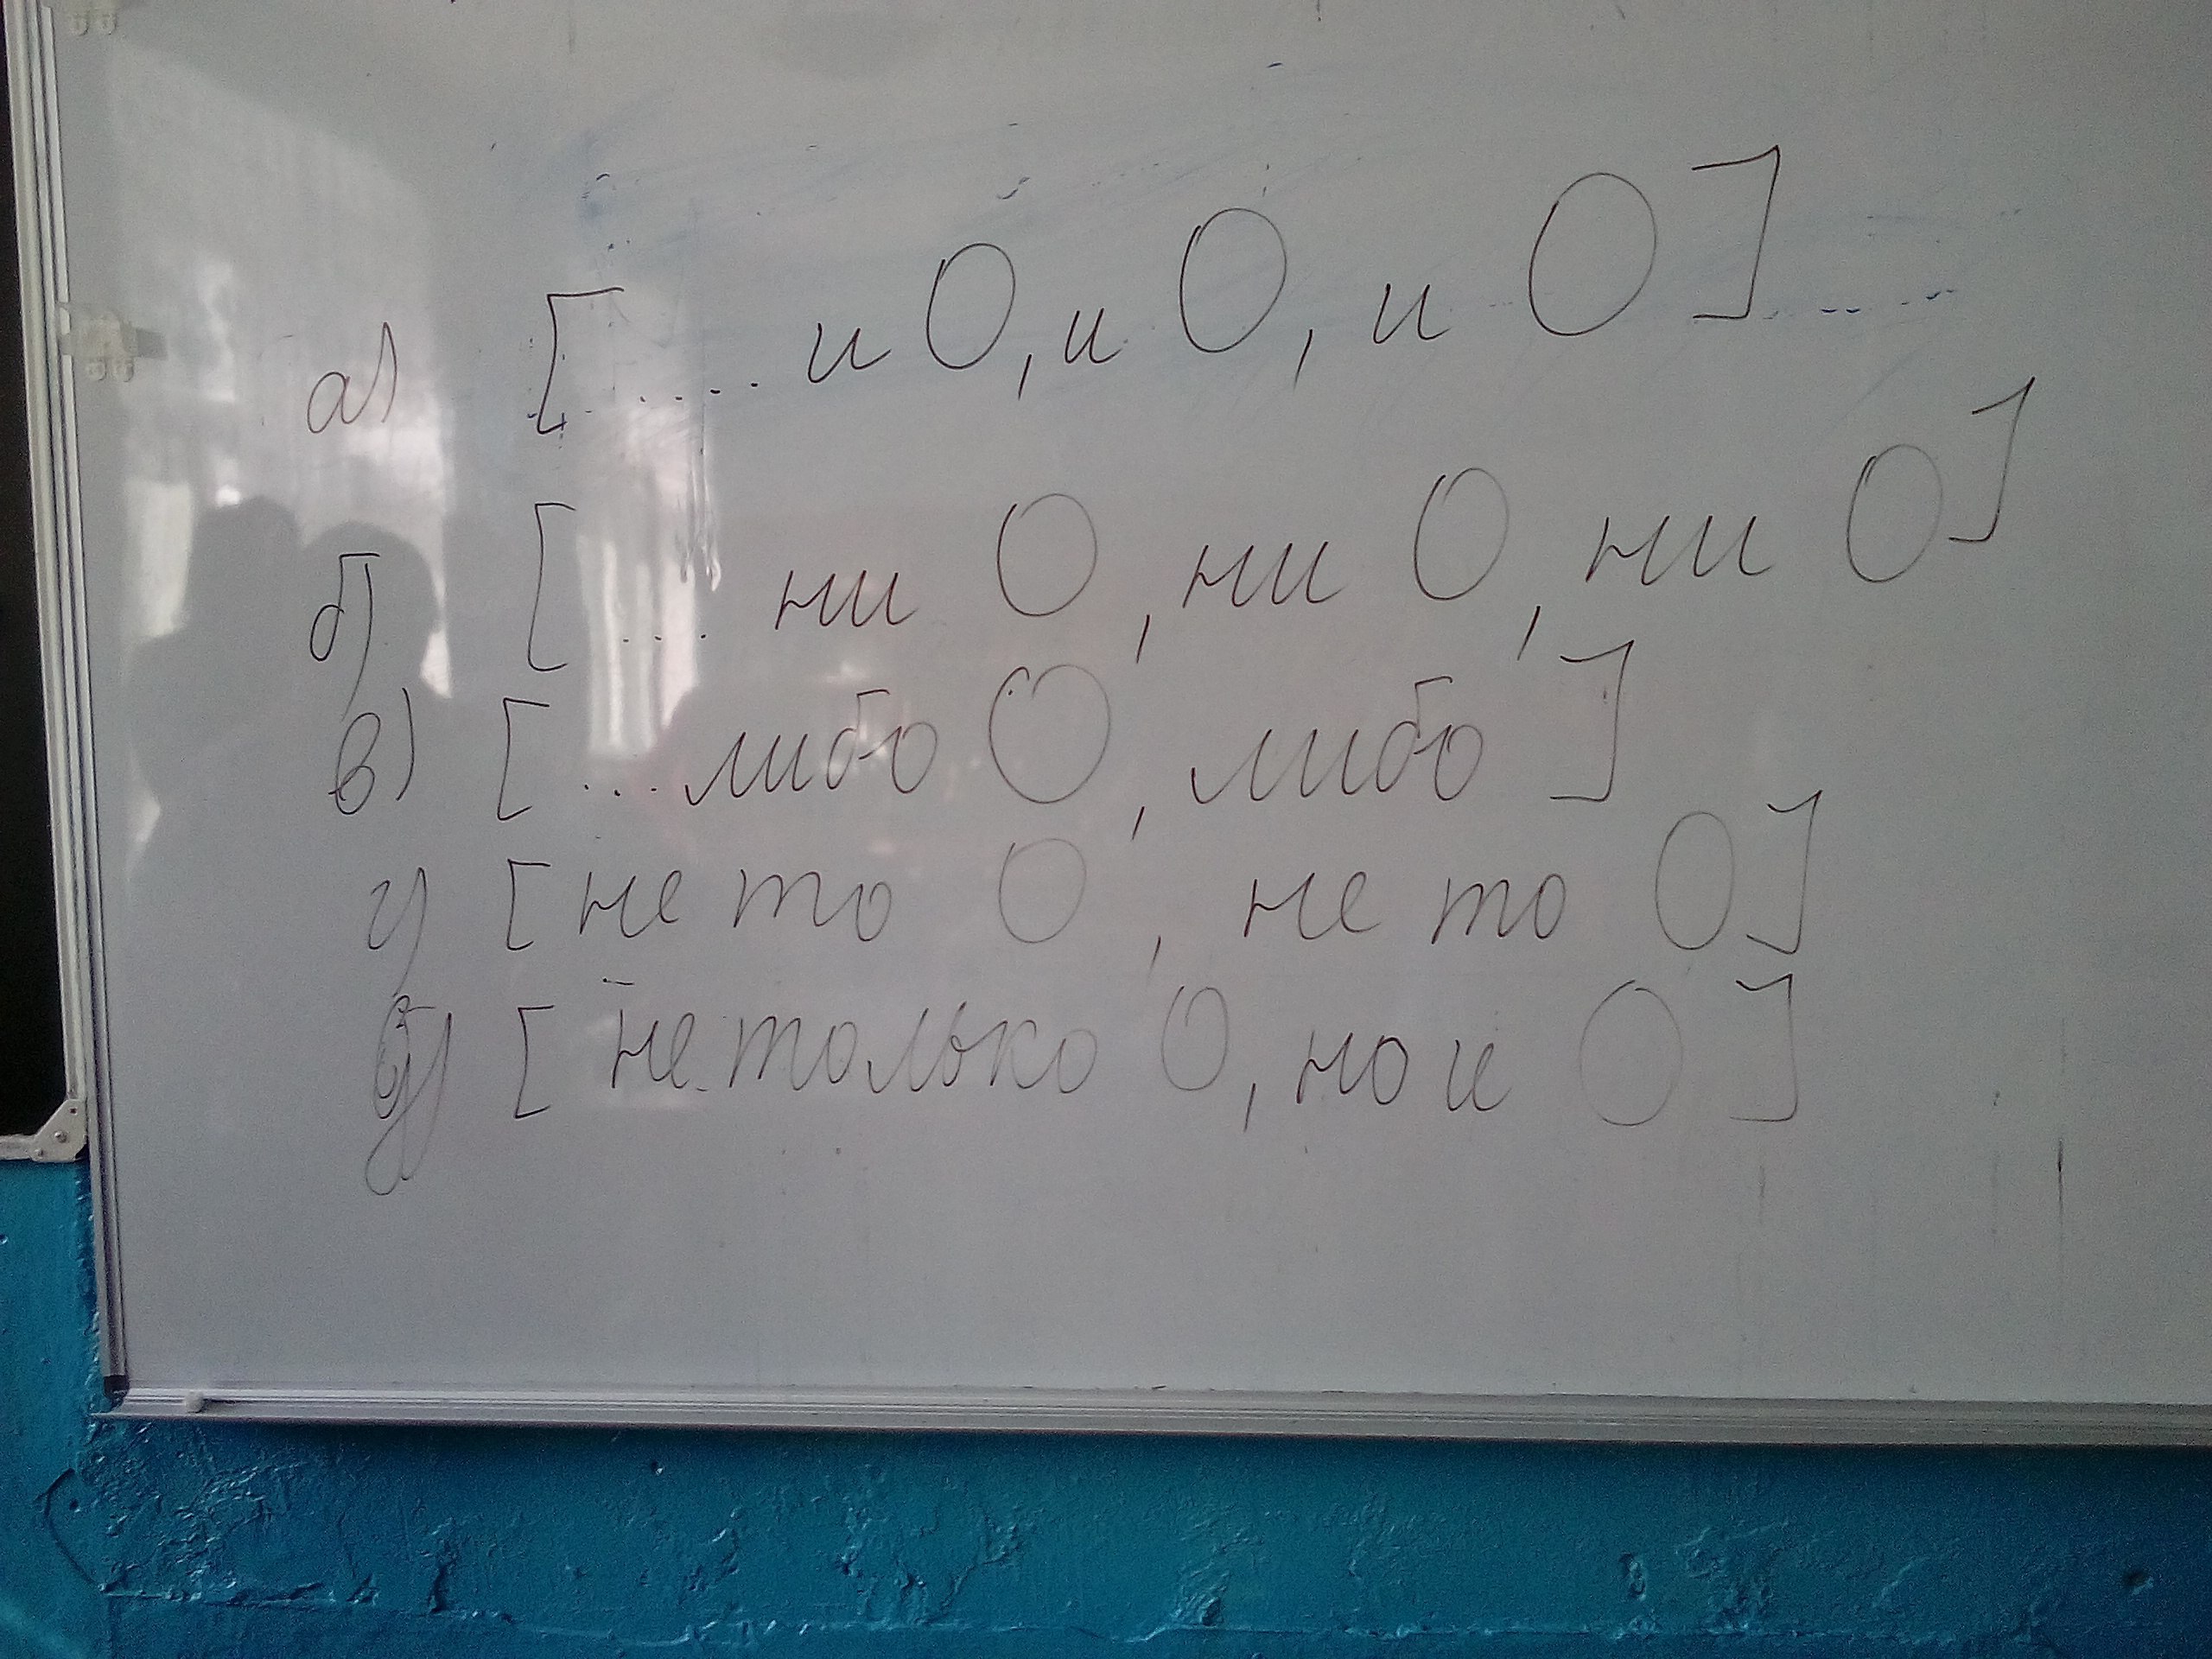 а) [..... и О, и О, и О]
б) [.... ни О, ни О, ни О]
в) [...либо О, либо ]
г) [не то О, не то О]
д) [не только О, но и О]